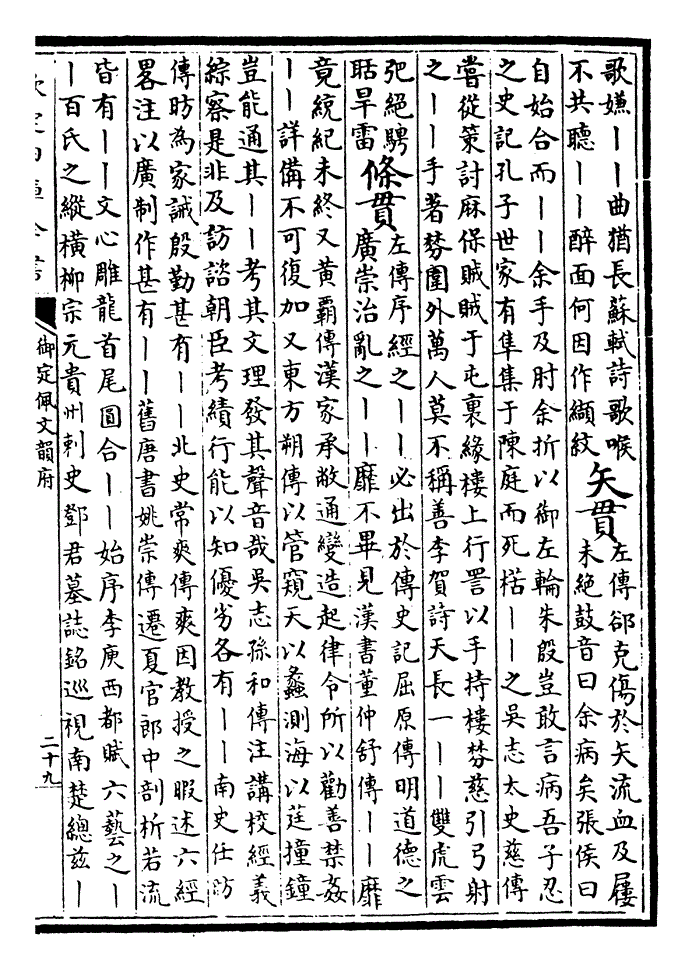 歌嫌丨丨曲猶長蘇軾詩歌喉
不共聽丨丨醉面何因作纈紋
矢貫
左傳郤克傷於矢流血及屨
未絕鼓音曰余病矣張侯曰
自始合而丨丨余手及肘余折以御左輪朱殷豈敢言病吾子忍
之史記孔子世家有隼集于陳庭而死楛丨丨之吳志太史慈傳
嘗從策討麻保賊賊于屯裏緣樓上行詈以手持樓棼慈引弓射
之丨丨手著棼圍外萬人莫不稱善李賀詩天長一丨丨雙虎雲
弝絕騁
聒旱雷
條貫
左傳序經之丨丨必出於傳史記屈原傳明道德之
廣崇治亂之丨丨靡不畢見漢書董仲舒傳丨丨靡
竟統紀未終又黃霸傳漢家承敝通變造起律令所以勸善禁姦
丨丨詳備不可復加又東方朔傳以管窺天以蠡測海以莛撞鐘
豈能通其丨丨考其文理發其聲音哉吳志孫和傳注講校經義
綜察是非及訪諮朝臣考績行能以知優劣各有丨丨南史任昉
傳昉為家誡殷勤甚有丨丨北史常爽傳爽因教授之暇述六經
畧注以廣制作甚有丨丨舊唐書姚崇傳遷夏官郎中剖析若流
皆有丨丨文心雕龍首尾圓合丨丨始序李庾西都賦六藝之丨
丨百氏之縱橫柳宗元貴州刺史鄧君墓誌銘巡視南楚總茲丨
欽定四庫全書
御定佩文韻府
二十九